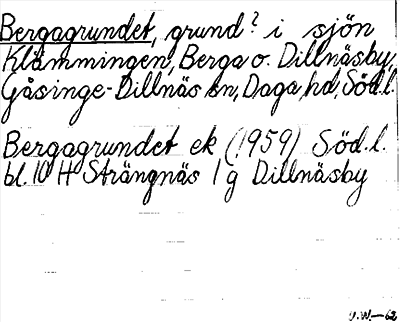 Bergagrundet, grund? i sjön
Klämmingen, Berga o. Dillnäsby,
Gåsinge-Dillnäs sn, Daga hd, Söd.l.
Bergagrundet ek (1959) Söd.l.
bl.10 H Strängnäs 1g Dillnäsby
V.W.-62